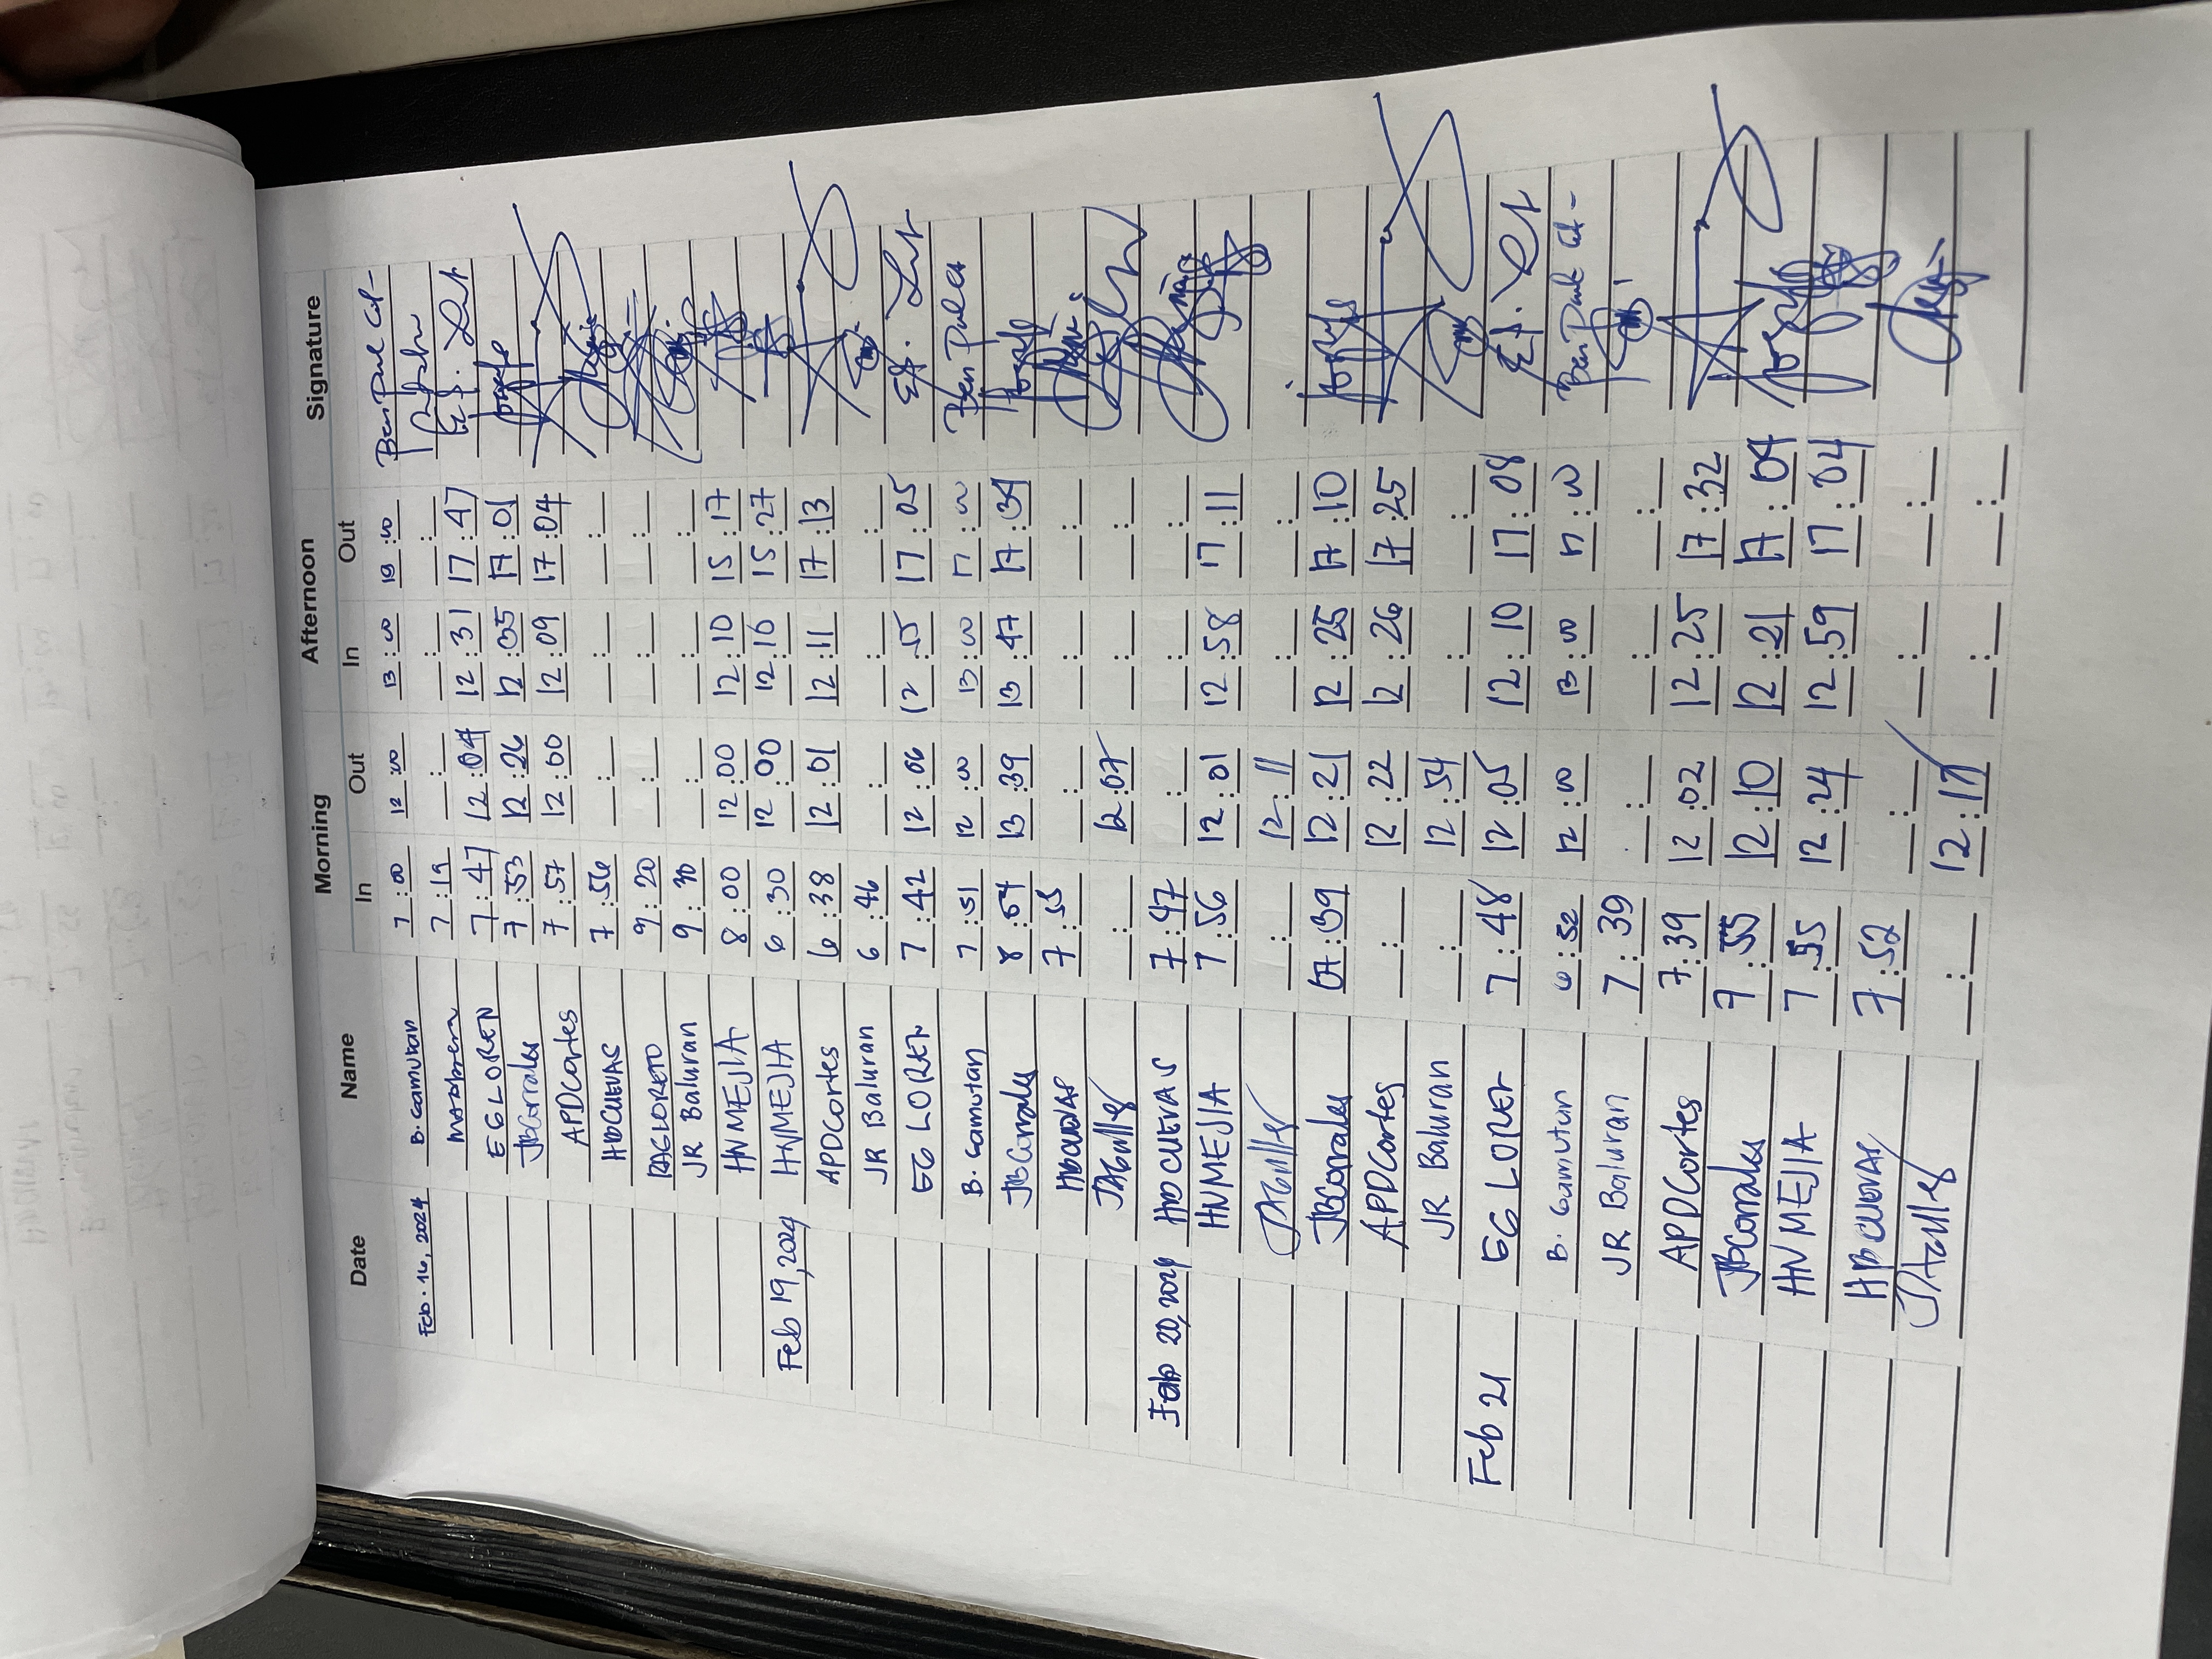 Date Name Morning Afternoon Signature
In Out In Out
Feb. 16, 2024 B. Gamutan 7:00 12:00 13:00 18:00
7:19 __:__ __:__ __:__
EG LOREN 7:47 12:04 12:31 17:47
JBCorrales 7:53 12:26 12:35 17:01
APDCortes 7:57 12:00 12:09 17:04
HDCUEVAS 7:56 __:__ __:__ __:__
RAGLORETO 9:20 __:__ __:__ __:__
JR Baluran 9:30 __:__ __:__ __:__
HNMEJIA 8:00 12:00 12:10 15:17
Feb 19, 2024 HNMEJIA 6:30 12:00 12:16 15:27
APDCortes 6:38 12:01 12:11 17:13
JR Baluran 6:46 __:__ __:__ __:__
EG LOREN 7:42 12:06 12:55 17:05
B. Gamutan 7:51 12:00 13:00 17:00
JBCorrales 8:54 13:39 13:47 17:34
HDCUEVAS 7:55 __:__ __:__ __:__
JAGulles __:__ 12:07 __:__ __:__
Feb 20, 2024 HDCUEVAS 7:47 __:__ __:__ __:__
HNMEJIA 7:56 12:01 12:58 17:11
JAGulles __:__ 12:11 __:__ __:__
JBCorrales 07:39 12:21 12:25 17:10
APDCortes __:__ 12:22 12:26 17:25
JR Baluran __:__ 12:54 __:__ __:__
Feb 21 EG LOREN 7:48 12:05 12:10 17:08
B. Gamutan 6:52 12:00 13:00 17:00
JR Baluran 7:39 __:__ __:__ __:__
APDCortes 7:39 12:02 12:25 17:32
JBCorrales 7:55 12:10 12:21 17:04
HNMEJIA 7:55 12:24 12:59 17:04
HDCUEVAS 7:52 __:__ __:__ __:__
JAGulles __:__ 12:17 __:__ __:__
__:__ __:__